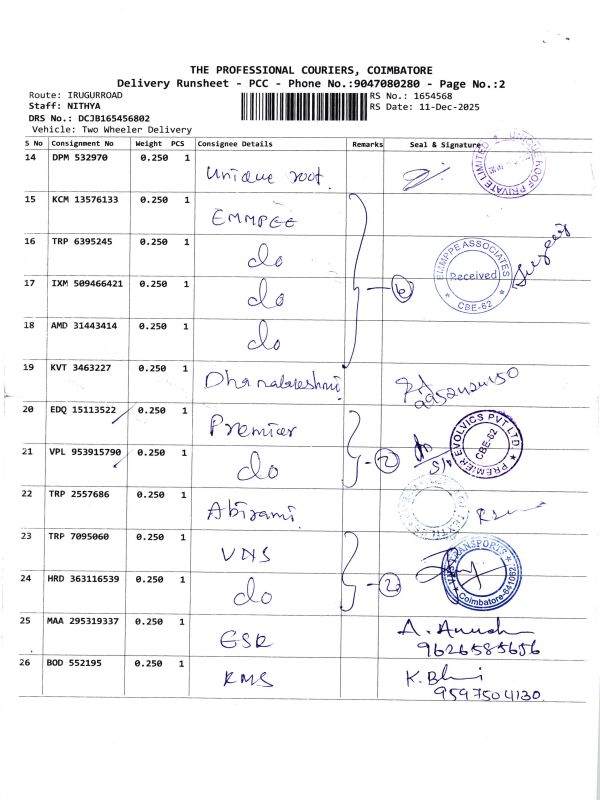 THE PROFESSIONAL COURIERS, COIMBATORE
Delivery Runsheet - PCC - Phone No.:9047080280 - Page No.:2
Route: IRUGURROAD
RS No.: 1654568
Staff: NITHYA
RS Date: 11-Dec-2025
DRS No.: DCJB165456802
Vehicle: Two Wheeler Delivery
S No Consignment No Weight PCS Consignee Details Remarks Seal & Signature
14 DPM 532970 0.250 1 Unique roof.
UNIQUE ROOF PRIVATE LIMITED
15 KCM 13576133 0.250 1 EMMPEE
16 TRP 6395245 0.250 1 do
17 IXM 509466421 0.250 1 do
6
EMMPPE ASSOCIATES
Received
CBE-62
18 AMD 31443414 0.250 1 do
19 KVT 3463227 0.250 1
20 EDQ 15113522 0.250 1 Premier
21 VPL 953915790 0.250 1 do
2
PREMIER ENOLVICS PVT LTD
CBE-62
22 TRP 2557686 0.250 1 Abirami
23 TRP 7095060 0.250 1 VNS
24 HRD 363116539 0.250 1 do
2
VNS TRANSPORTS
Coimbatore-641062
25 MAA 295319337 0.250 1 GSR
9626585656
26 BOD 552195 0.250 1 RMS
9597504130